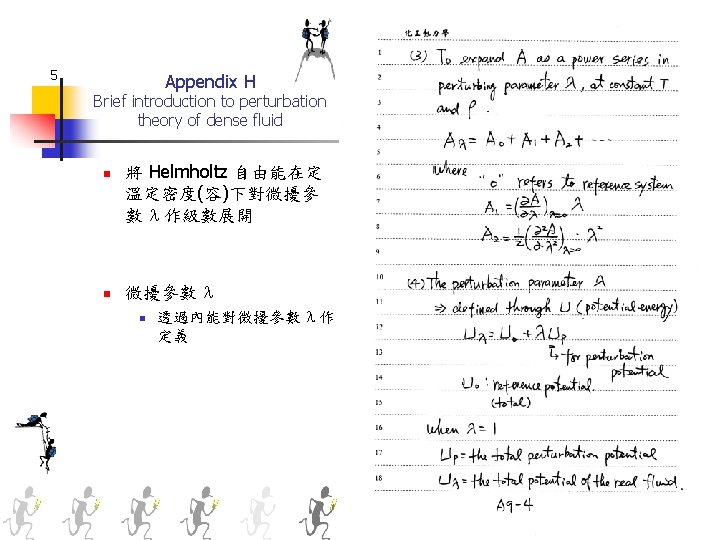 5
Appendix H
Brief introduction to perturbation
theory of dense fluid
將 Helmholtz 自由能在定
溫定密度(容)下對微擾參
數 λ 作級數展開
微擾參數 λ
透過內能對微擾參數 λ 作
定義
化工熱力學
1 (3) To expand A as a power series in
2 perturbing parameter λ, at constant T
3 and ρ.
4
5 Aλ = A₀ + A₁ + A₂ + ⋯
6 where "o" refers to reference system
7 A₁ = (∂A/∂λ)λ=0 λ
8
9 A₂ = ½(∂²A/∂λ²)λ=0 · λ²
10 (4) The perturbation parameter λ
11 ⇒ defined through U (potential energy)
12 Uλ = U₀ + λUp
13 ↳ for perturbation
potential
14 U₀ : reference potential
15 (total)
16 when λ = 1
17 Up = the total perturbation potential
18 Uλ = the total potential of the real fluid.
A9-4